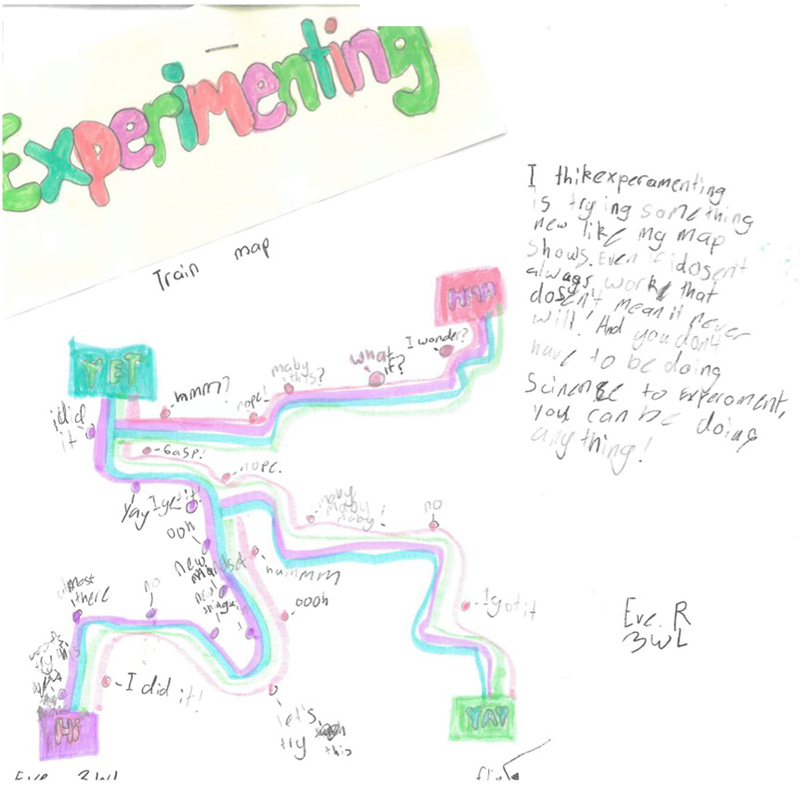 Experimenting
Train map
I thikexperamenting
is trying something
new like my map
shows. Even if idosent
always work that
dosen't mean it never
will! And you don't
have to be doing
Scienc to experoment,
you can be doing
any thing!
HMM
I wonder?
what if?
maby this?
nope!
mmm?
YET
i did it
Gasp!
nope.
Yay
I get it!
ooh
new
maby maby maby!
no
hummmm
almost there
no
ooooh
I got it
I did it!
let's try this
Hi
YAY
Eve. R
3WL
Eve 3WL
flip